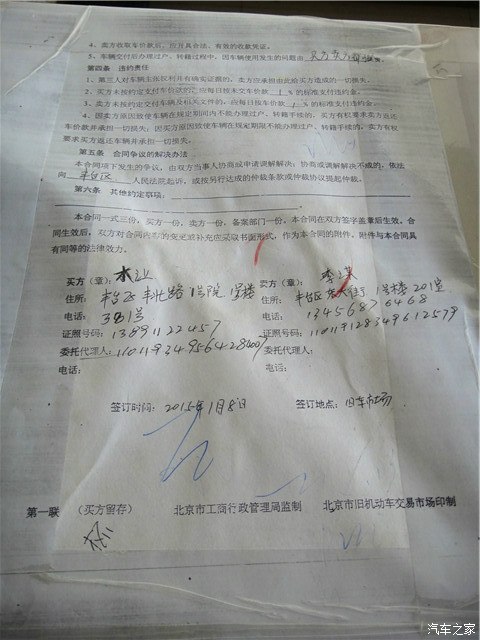 4、卖方收取车价款后，应开具合法、有效的收款凭证。
5、车辆交付后办理过户、转籍过程中，因车辆使用发生的问题由 买方
第四条 违约责任
1、第三人对车辆主张权利并有确实证据的，卖方应承担由此给买方造成的一切损失。
2、买方未按约定支付车价款的，应每日按未交车价款 1 %的标准支付违约金。
3、卖方未按约定交付车辆及相关文件的，应每日按车价款 1 %的标准支付违约金。
4、因卖方原因致使车辆在规定期间内不能办理过户、转籍手续的，买方有权要求卖方返还
车价款并承担一切损失；因买方原因致使车辆在规定期限不能办理过户、转籍手续的，卖方有权
要求买方返还车辆并承担一切损失。
第五条 合同争议的解决办法
本合同项下发生的争议，由双方当事人协商或申请调解解决；协商或调解解决不成的，依法
向 丰台区 人民法院起诉，或按另行达成的仲裁条款或仲裁协议提起仲裁。
第六条 其他约定事项：
本合同一式三份，买方一份，卖方一份，备案部门一份。本合同在双方签字盖章后生效。合
同生效后，双方对合同内容的变更或补充应采取书面形式，作为本合同的附件。附件与本合同具
有同等的法律效力。
买方（章）：
卖方（章）：李
住所：丰台区 丰北路 1号院 3号楼
住所：丰台区 大街 1号楼 201室
电话：301号
电话：13456876468
证照号码：13891122457
证照号码：110119128349612579
委托代理人：
委托代理人：
电话：
电话：
签订时间：2015年1月8日
签订地点：旧车市场
第一联 （买方留存） 北京市工商行政管理局监制 北京市旧机动车交易市场印制
汽车之家